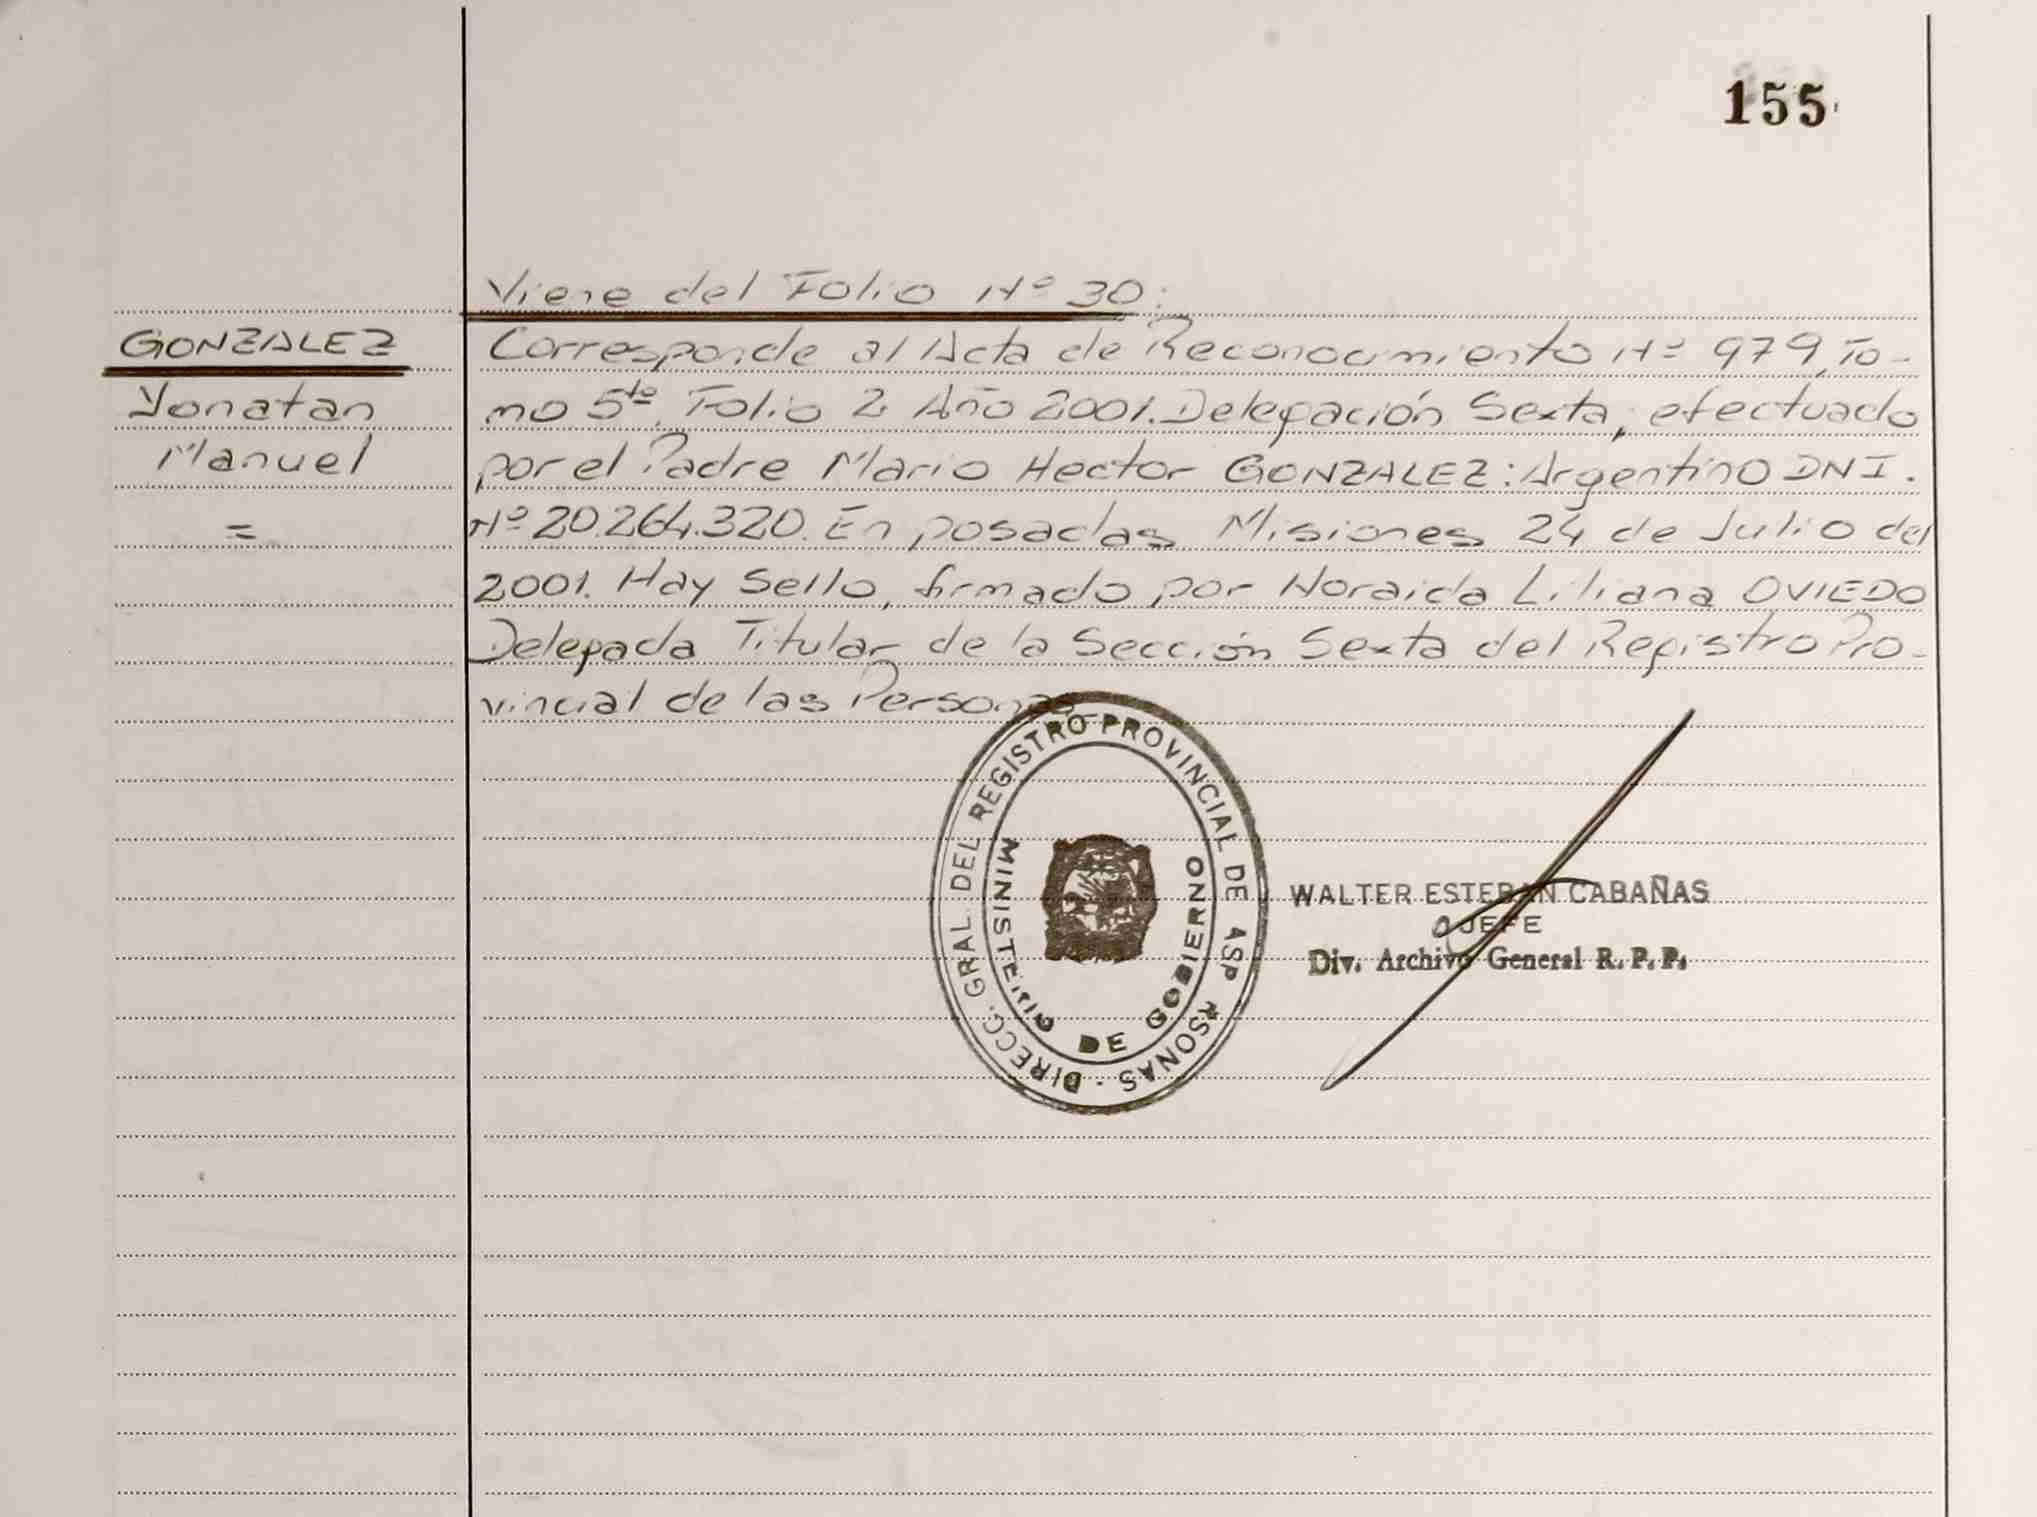 155
Viene del Folio Nº 30:
GONZALEZ
Yonatan
Manuel
=
Corresponde al Acta de Reconocimiento Nº 979, To-
mo 5to, Folio 2 Año 2001. Delegación Sexta, efectuado
por el Padre Mario Hector GONZALEZ: Argentino DNI.
Nº 20.264.320. En posadas Misiones 24 de Julio del
2001. Hay Sello, firmado por Noraida Liliana OVIEDO
Delegada Titular de la Sección Sexta del Registro Pro-
vincial de las Personas
DIRECC. GRAL. DEL REGISTRO PROVINCIAL DE
MINISTERIO DE GOBIERNO
WALTER ESTEBAN CABAÑAS
JEFE
Div. Archivo General R. P. P.